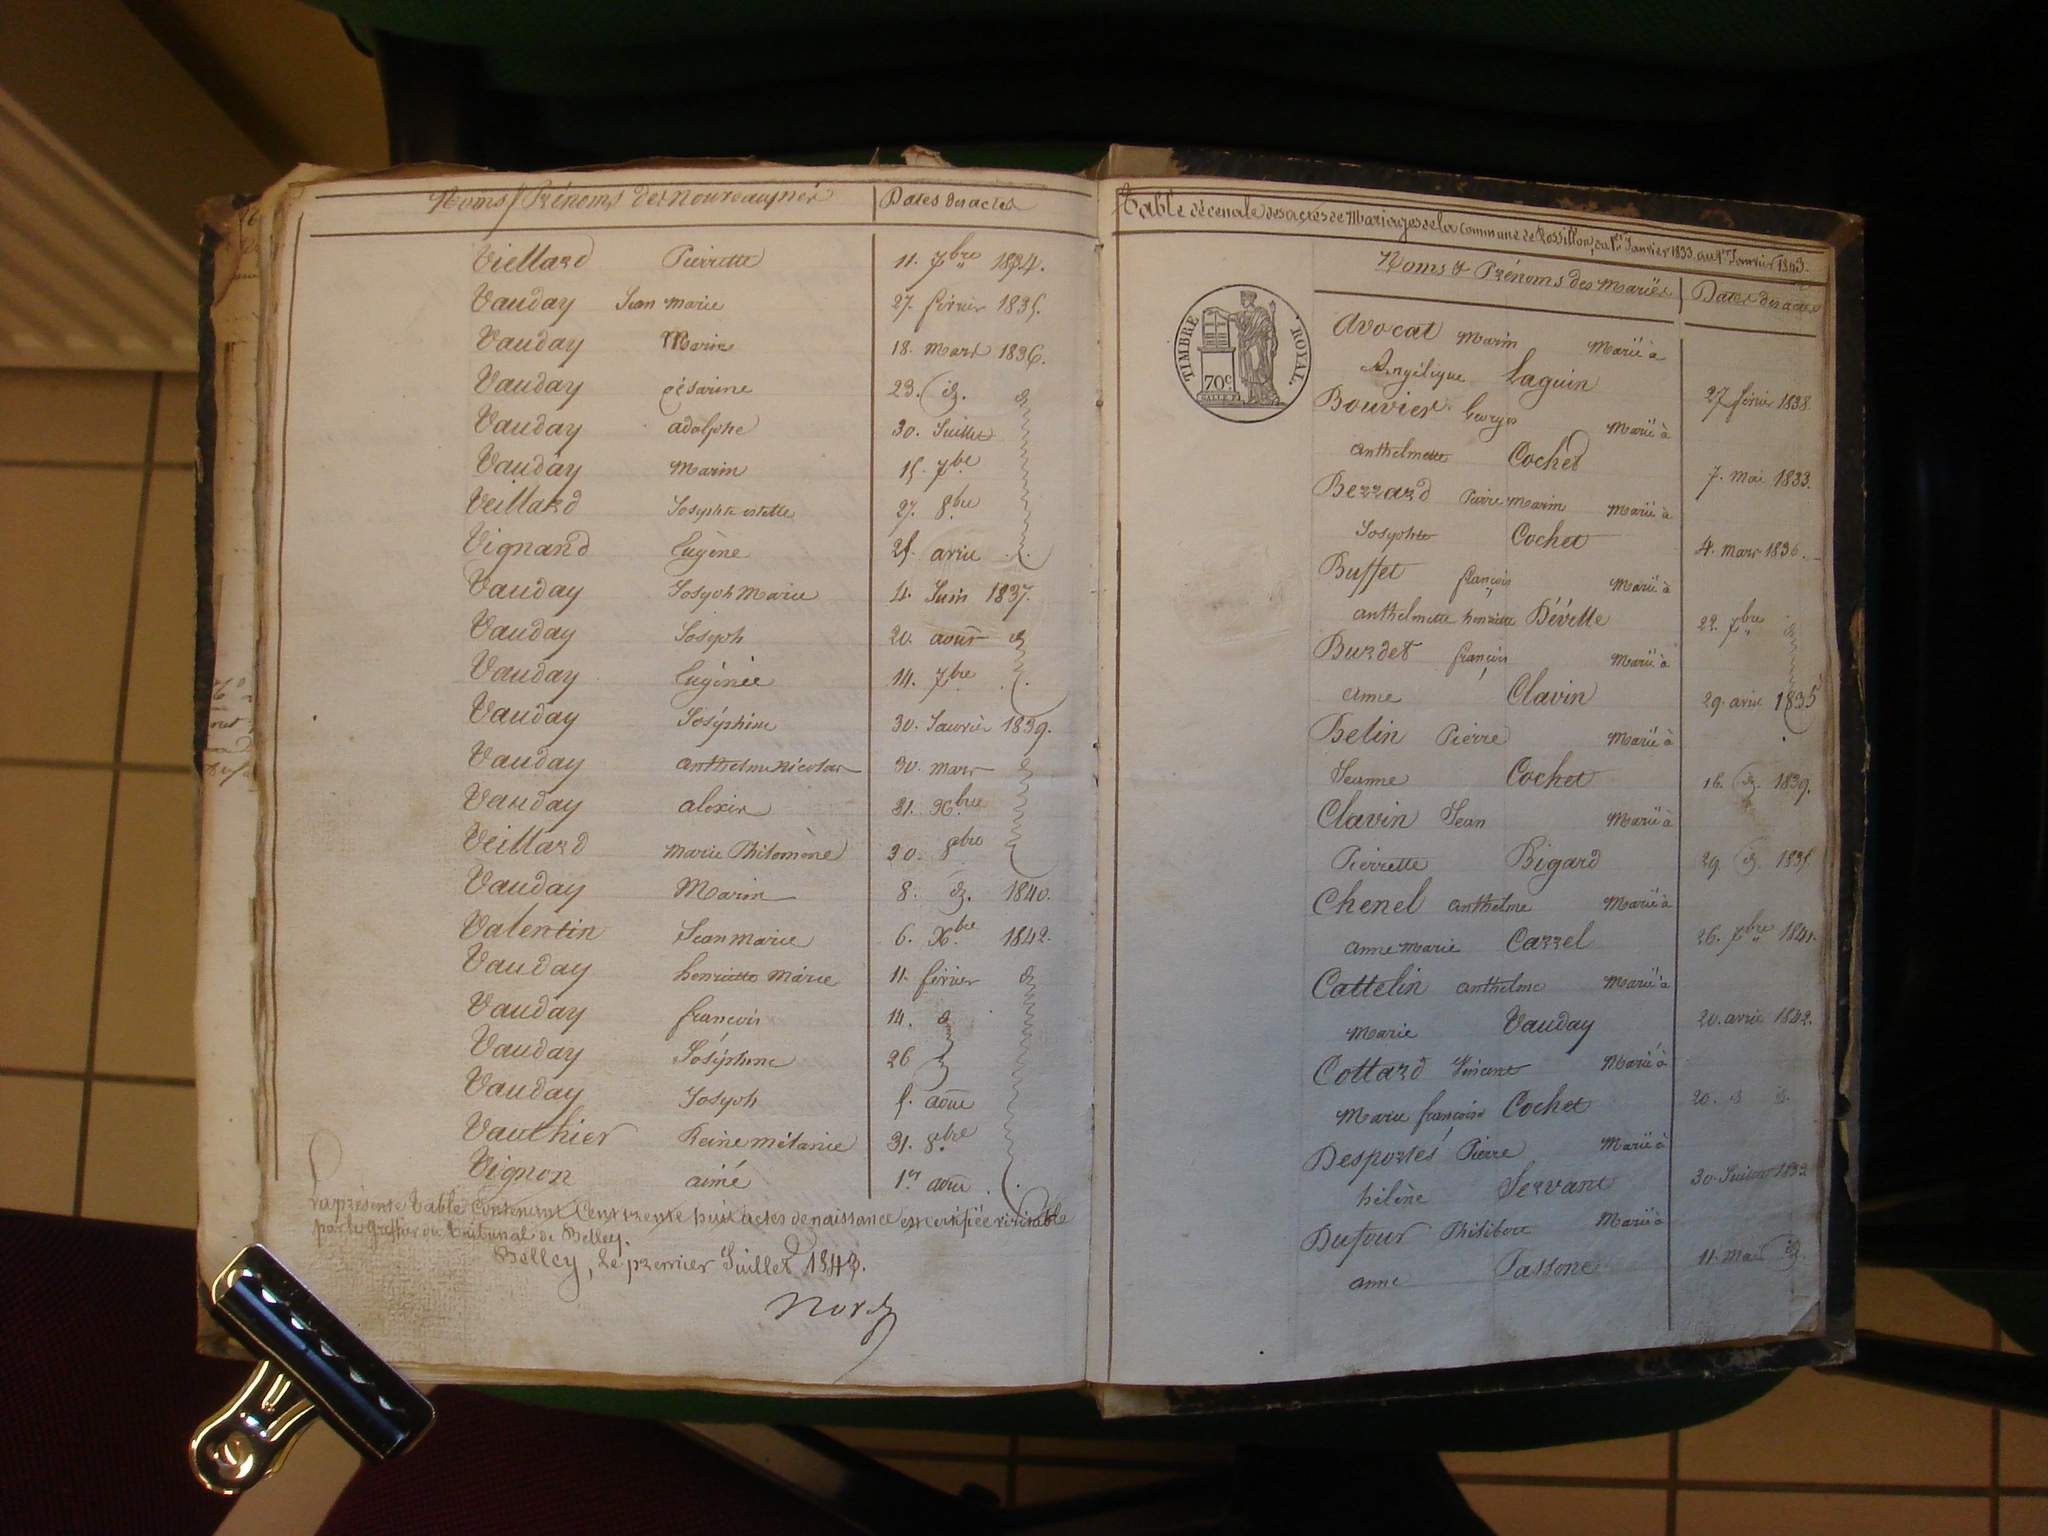 Noms & Prénoms des nouveaux nés Dates des actes
Viellard Pierrette 11. 7bre 1834.
Vauday Jean marie 27. février 1835.
Vauday Marie 18. mars 1836.
Vauday césarine 23. id. id
Vauday adolphe 30. Juillet
Vauday Marin 15. 7bre
Veillard Josephte 27. 8bre
Vignand Eugène 25. avril
Vauday Joseph Marie 4. Juin 1837.
Vauday Joseph 20. août id
Vauday Eugénie 14. 7bre
Vauday Joséphine 30. Janvier 1839.
Vauday anthelme Nicolas 30. mars id
Vauday alexis 21. Xbre
Veillard Marie Philomène 30. 8bre
Vauday Marin 8. id. 1840.
Valentin Jean Marie 6. Xbre 1842.
Vauday henriette Marie 11. février id
Vauday françois 14. id
Vauday Joséphine 26
Vauday Joseph 5. août
Vauthier Reine mélanie 31. 8bre
Vignon aimé 1er août
La présente Table Contenant Cent trente huit actes de naissance est certifiée véritable
par le Greffier du Tribunal de Belley.
Belley, le premier Juillet 1843.
Table décennale des actes de Mariages de la commune de Rossillon, du 1er Janvier 1833 au 1er Janvier 1843.
Noms & Prénoms des Mariés Dates des actes
TIMBRE ROYAL.
70c.
Avocat Marin Marié à
Angélique Laguin 27 février 1838.
Bouvier Georges Marié à
anthelmette Cochet 7. mai 1833.
Berrard Pierre Marin Marié à
Josephte Cochet 4. mars 1836.
Buffet françois Marié à
anthelmette henriette Dévette 22. 7bre id
Burdet françois Marié à
anne Clavin 29. avril 1835
Belin Pierre Marié à
Jeanne Cochet 16. id. 1839.
Clavin Jean Marié à
Pierrette Bigard 29. id. 1835.
Chenel anthelme Marié à
anne marie Carrel 26. 7bre 1841.
Cattelin anthelme Marié à
Marie Vauday 20. avril 1842.
Cottard Vincent Marié à
Marie françoise Cochet 20. id id.
Desportés Pierre Marié à
hélène Servant 30. Juillet
Dufour Philibert Marié à
anne Passone 11. Mai id.